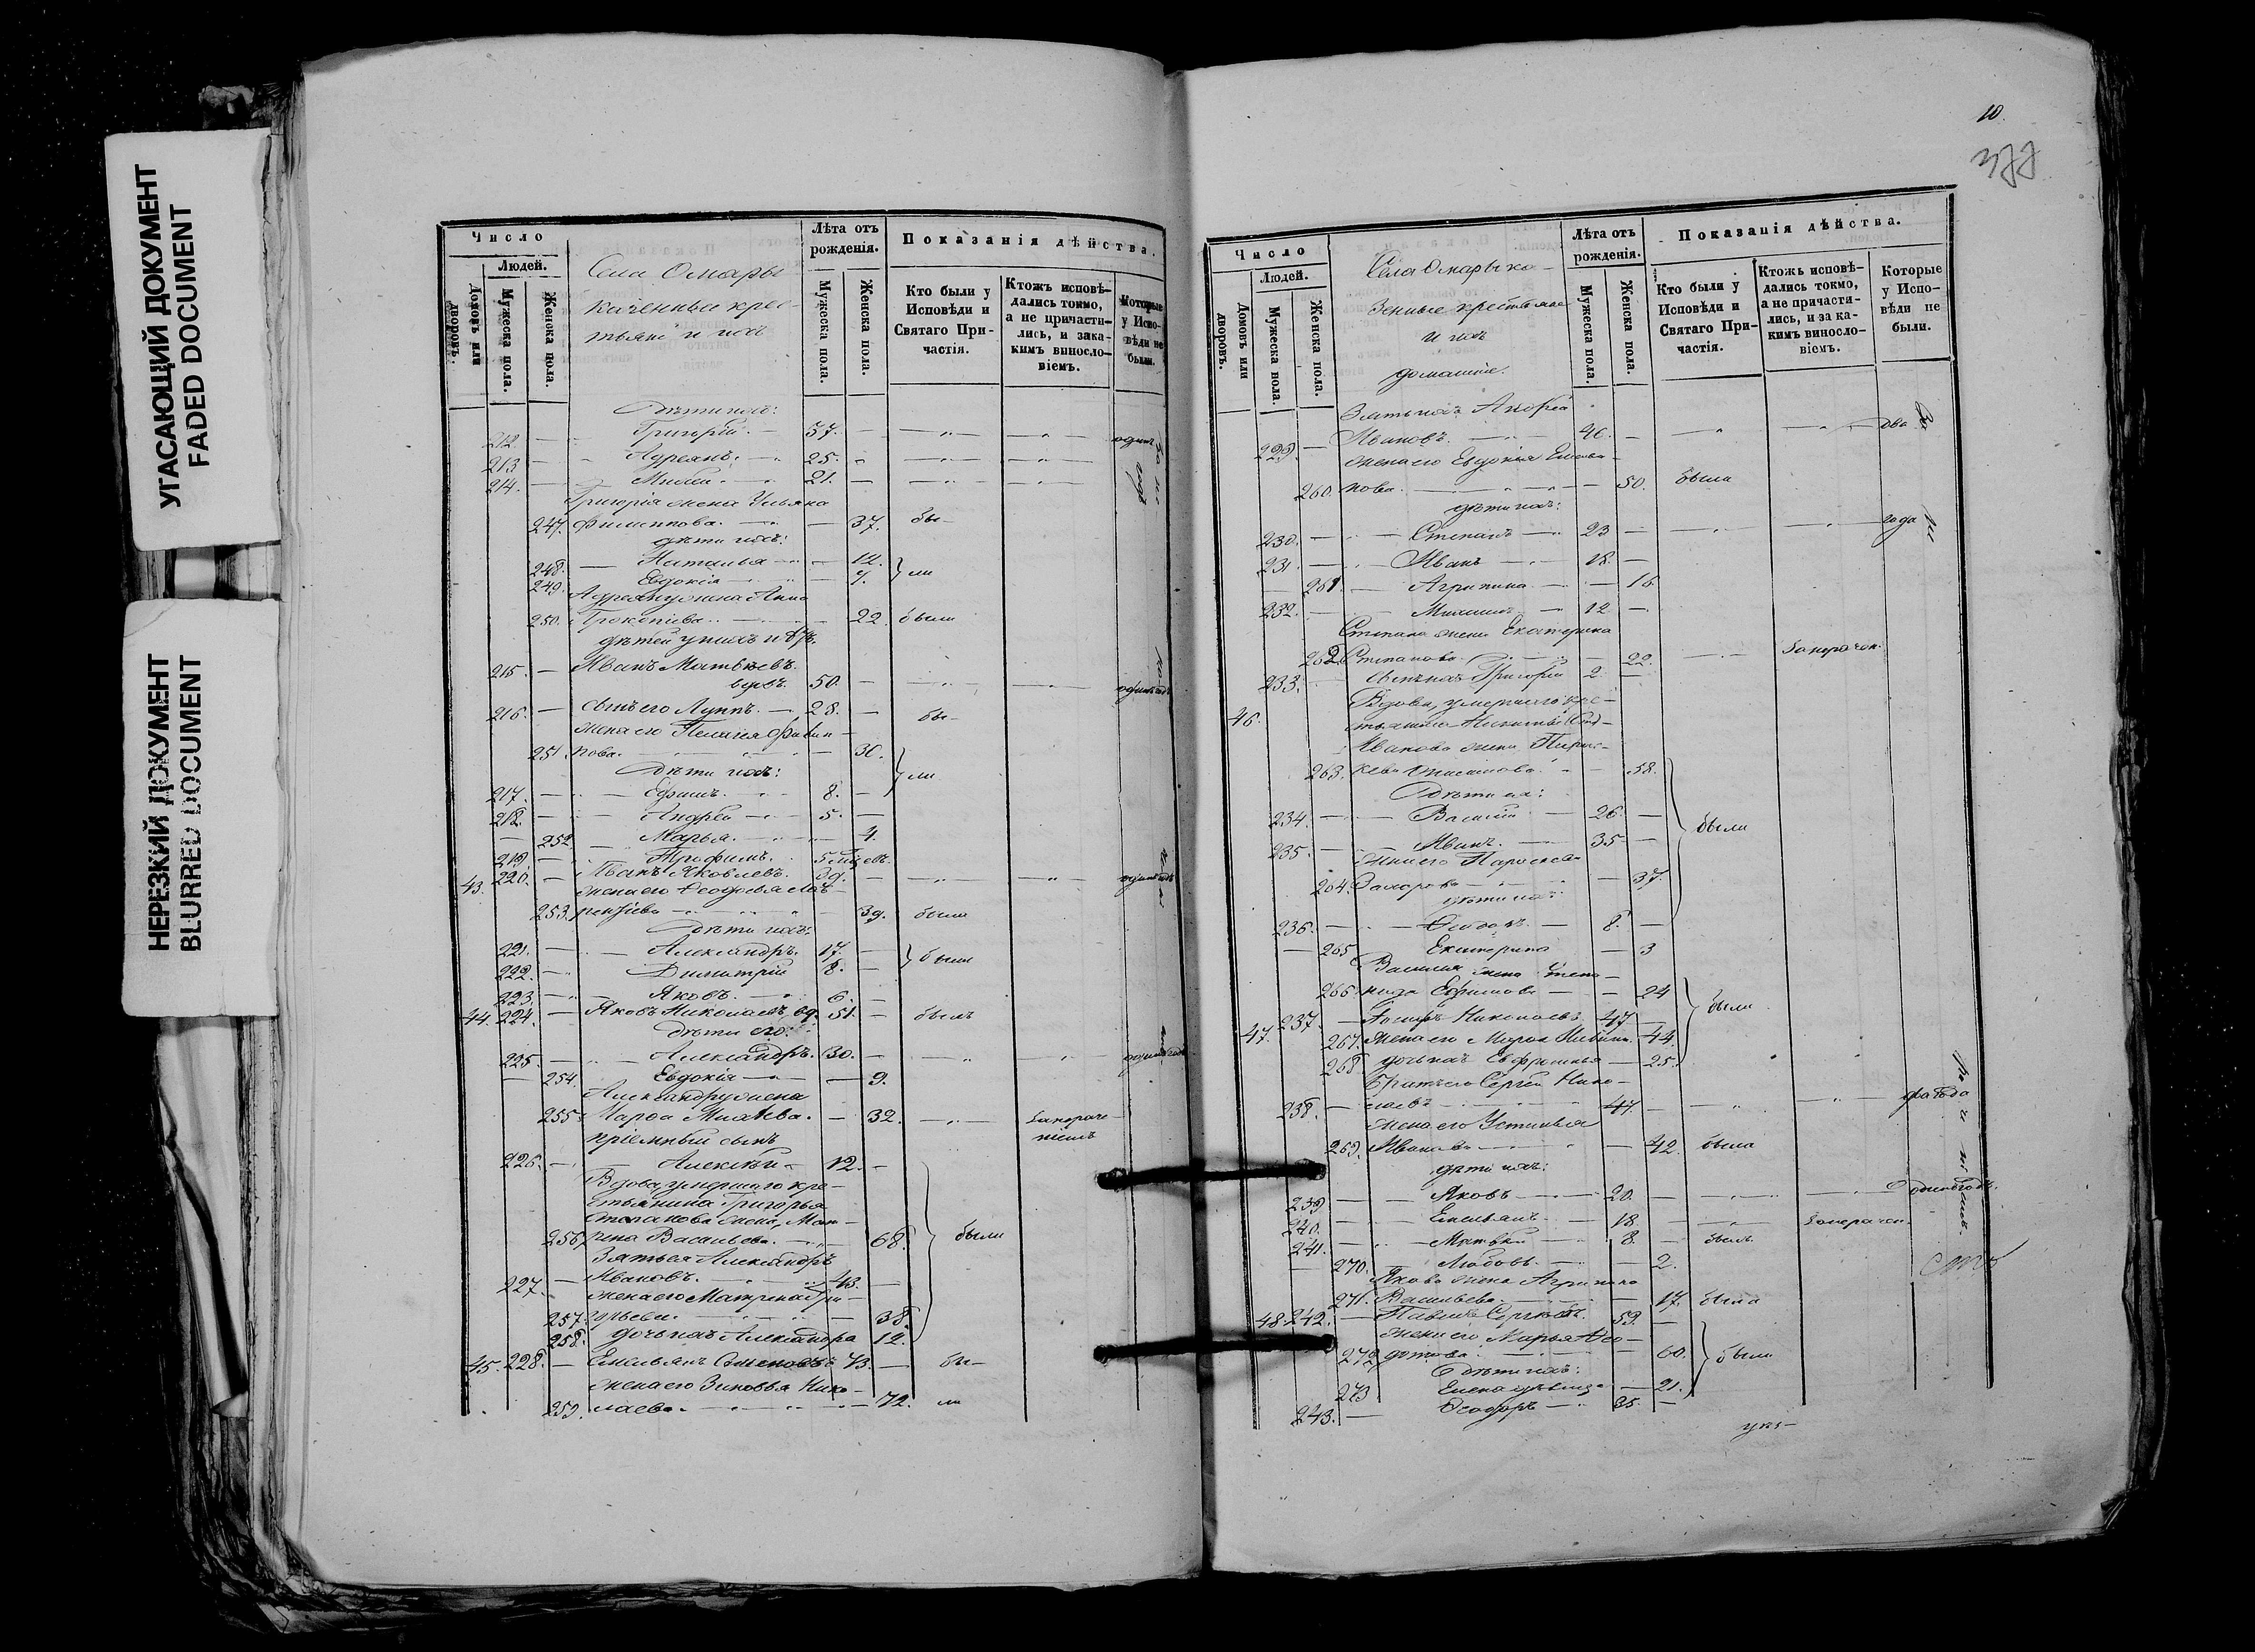 УГАСАЮЩИЙ ДОКУМЕНТ
FADED DOCUMENT
НЕРЕЗКИЙ ДОКУМЕНТ
BLURRED DOCUMENT
Число
Людей.
Домовъ или дворовъ.
Мужеска пола.
Женска пола.
Села Омары
казенные крес-
тьяне и ихъ
Лѣта отъ рожденія.
Мужеска пола.
Женска пола.
Показанія дѣйства.
Кто были у Исповѣди и Святаго При-частія.
Ктожъ исповѣ-дались токмо, а не причасти-лись, и зака-кимъ винosло-віемъ.
Которые у Испо-вѣди не были.
Дѣти ихъ:
212. Григорій. 37. одинъ
213 Адреянъ. 25.
214. 21.
Григорія жена Ульяна
247. Филиппова. 37. бы-
дѣти ихъ:
248. Наталья 12. } ли
249. Евдокія 7.
Адреяну жена Анна
250. Прокопіева. 22. были
215. Иванъ Матвѣевъ.
вдовъ. 50.
216. сынъ его Луппъ. 28. бы-
жена его Пелагея Филип-
251. пова. 30. } ли
Дѣти ихъ:
217. Ефимъ. 8.
218. Андрей 5.
252 Марья. 4.
219. Трофимъ. 5
43. 220. Иванъ Яковлевъ. 39.
жена его Феодосья Лав-
253. рентіева 39. была
Дѣти ихъ:
221. Александръ. 17. } были
222. Димитрій 8.
223. Яковъ. 6.
44. 224. Яковъ Николаевъ вд. 51. былъ
Дѣти его:
225. Александръ. 30.
254. Евдокія 9.
Александру жена
255. Марфа 32.
пріемный сынъ
226. Алексѣй 12.
Вдова, умершаго кре-
стьянина Григорья
Степанова жена, Мат-
256. рена Васильева. 68. были
Зять ея Александръ
227. Ивановъ. 43.
жена его Матрена Гри-
257. горьева. 38.
258. дочь ихъ Александра 12.
45. 228. Емельянъ Семеновъ 73. бы-
жена его Зиновья Нико-
259. лаева. 72. ли
10.
377
Число
Людей.
Домовъ или дворовъ.
Мужеска пола.
Женска пола.
Села Омары ка-
зенные крестьяне
и ихъ
домашніе.
Лѣта отъ рожденія.
Мужеска пола.
Женска пола.
Показанія дѣйства.
Кто были у Исповѣди и Святаго При-частія.
Ктожъ исповѣ-дались токмо, а не причасти-лись, и за ка-кимъ виносло-віемъ.
Которые у Испо-вѣди не были.
Зять ихъ Андрей
229 Ивановъ. 46. два
жена его Евдокія Емелья-
260. нова. 50. была
дѣти ихъ:
230. Степанъ 23 года
231. Иванъ 18.
261 Агрипина 16
232. 12
Степана жена Екатерина
262. Степанова. 22.
233. сынъ ихъ Григорій 2
46. Вдова, умершаго кре-
стьянина Никиты
Иванова жена Парас-
263. кева 58.
Дѣти ея:
234. Василій 26. } были
235. Иванъ. 35
жена его Параскева
264. Захарова 37.
дѣти ихъ:
236. 8.
265 Екатерина 3
Василія жена Степа-
266. нида Ефимова 24 } были
47. 237. Николаевъ 47
267. жена его 44.
268. дочь ихъ Евфросинья 25.
Братъ его Сергѣй Нико-
238. лаевъ 47. два года
жена его Устинья
269. Иванова 42. была
дѣти ихъ:
239 Яковъ 20.
240. Емельянъ. 18.
241. Матвѣй 8. былъ
270. Любовь. 2.
Якова жена Агрипина
271. Васильева. 17. была
48. 242. Павелъ Сергѣевъ. 53.
жена его Марья Фео-
272 дотова. 60. } были
Дѣти ихъ:
273 Елена дѣвица 21.
243. Феодоръ 35.